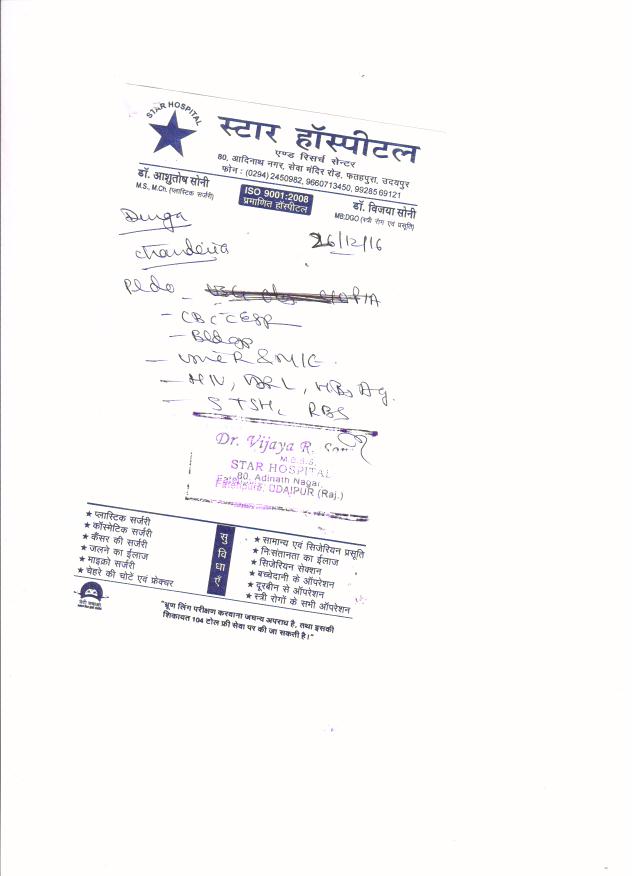 STAR HOSPITAL
स्टार हॉस्पीटल
एण्ड रिसर्च सेन्टर
80, आदिनाथ नगर, सेवा मंदिर रोड़, फतहपुरा, उदयपुर
फोन : (0294) 2450982, 9660713450, 9928569121
डॉ. आशुतोष सोनी
M.S., M.Ch. (प्लास्टिक सर्जरी)
ISO 9001:2008
प्रमाणित हॉस्पीटल
डॉ. विजया सोनी
MB;DGO (स्त्री रोग एवं प्रसूति)
Durga
26/12/16
Pl do
- CBC C ESR
- Bldgp
- Urine R & M/C
- HIV, VDRL, HBsAg.
- S TSH, RBS
Dr. Vijaya R. Soni
M.B.B.S.
STAR HOSPITAL
80, Adinath Nagar,
Fatehpura, UDAIPUR (Raj.)
सुविधाएँ
★ प्लास्टिक सर्जरी
★ कॉस्मेटिक सर्जरी
★ कैंसर की सर्जरी
★ जलने का ईलाज
★ माइक्रो सर्जरी
★ चेहरे की चोटें एवं फ्रेक्चर
★ सामान्य एवं सिजेरियन प्रसूति
★ निःसंतानता का ईलाज
★ सिजेरियन सेक्शन
★ बच्चेदानी के ऑपरेशन
★ दूरबीन से ऑपरेशन
★ स्त्री रोगों के सभी ऑपरेशन
"भ्रूण लिंग परीक्षण करवाना जघन्य अपराध है, तथा इसकी
शिकायत 104 टोल फ्री सेवा पर की जा सकती है।"